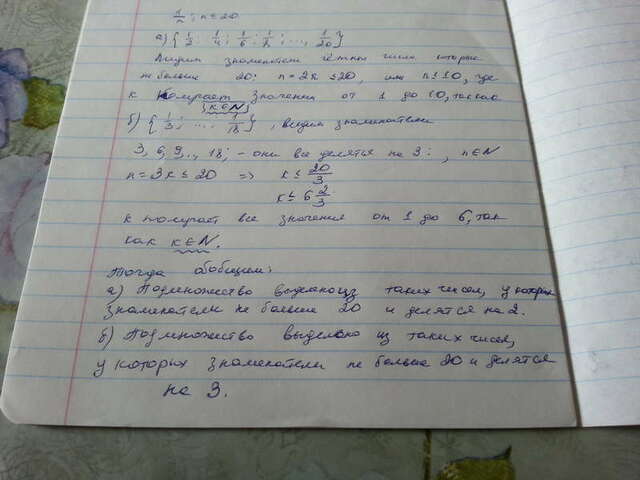 1/n ; n ≤ 20
а) { 1/2 ; 1/4 ; 1/6 ; 1/8 ; ..., 1/20 }
Видим знаменатели чётные числа, которые
не больше 20; n = 2k ≤ 20, или k ≤ 10, где
k получает значения от 1 до 10, так как
k ∈ N
б) { 1/3 ; ... 1/18 }, видим знаменатели
3, 6, 9, .., 18; - они все делятся на 3 : , n ∈ N
n = 3k ≤ 20 => k ≤ 20/3
k ≤ 6 2/3
k получает все значения от 1 до 6, так
как k ∈ N.
Тогда обобщим:
а) Подмножество выделено из таких чисел, у которых
знаменатели не больше 20 и делятся на 2.
б) Подмножество выделено из таких чисел,
у которых знаменатели не больше 20 и делятся
на 3.